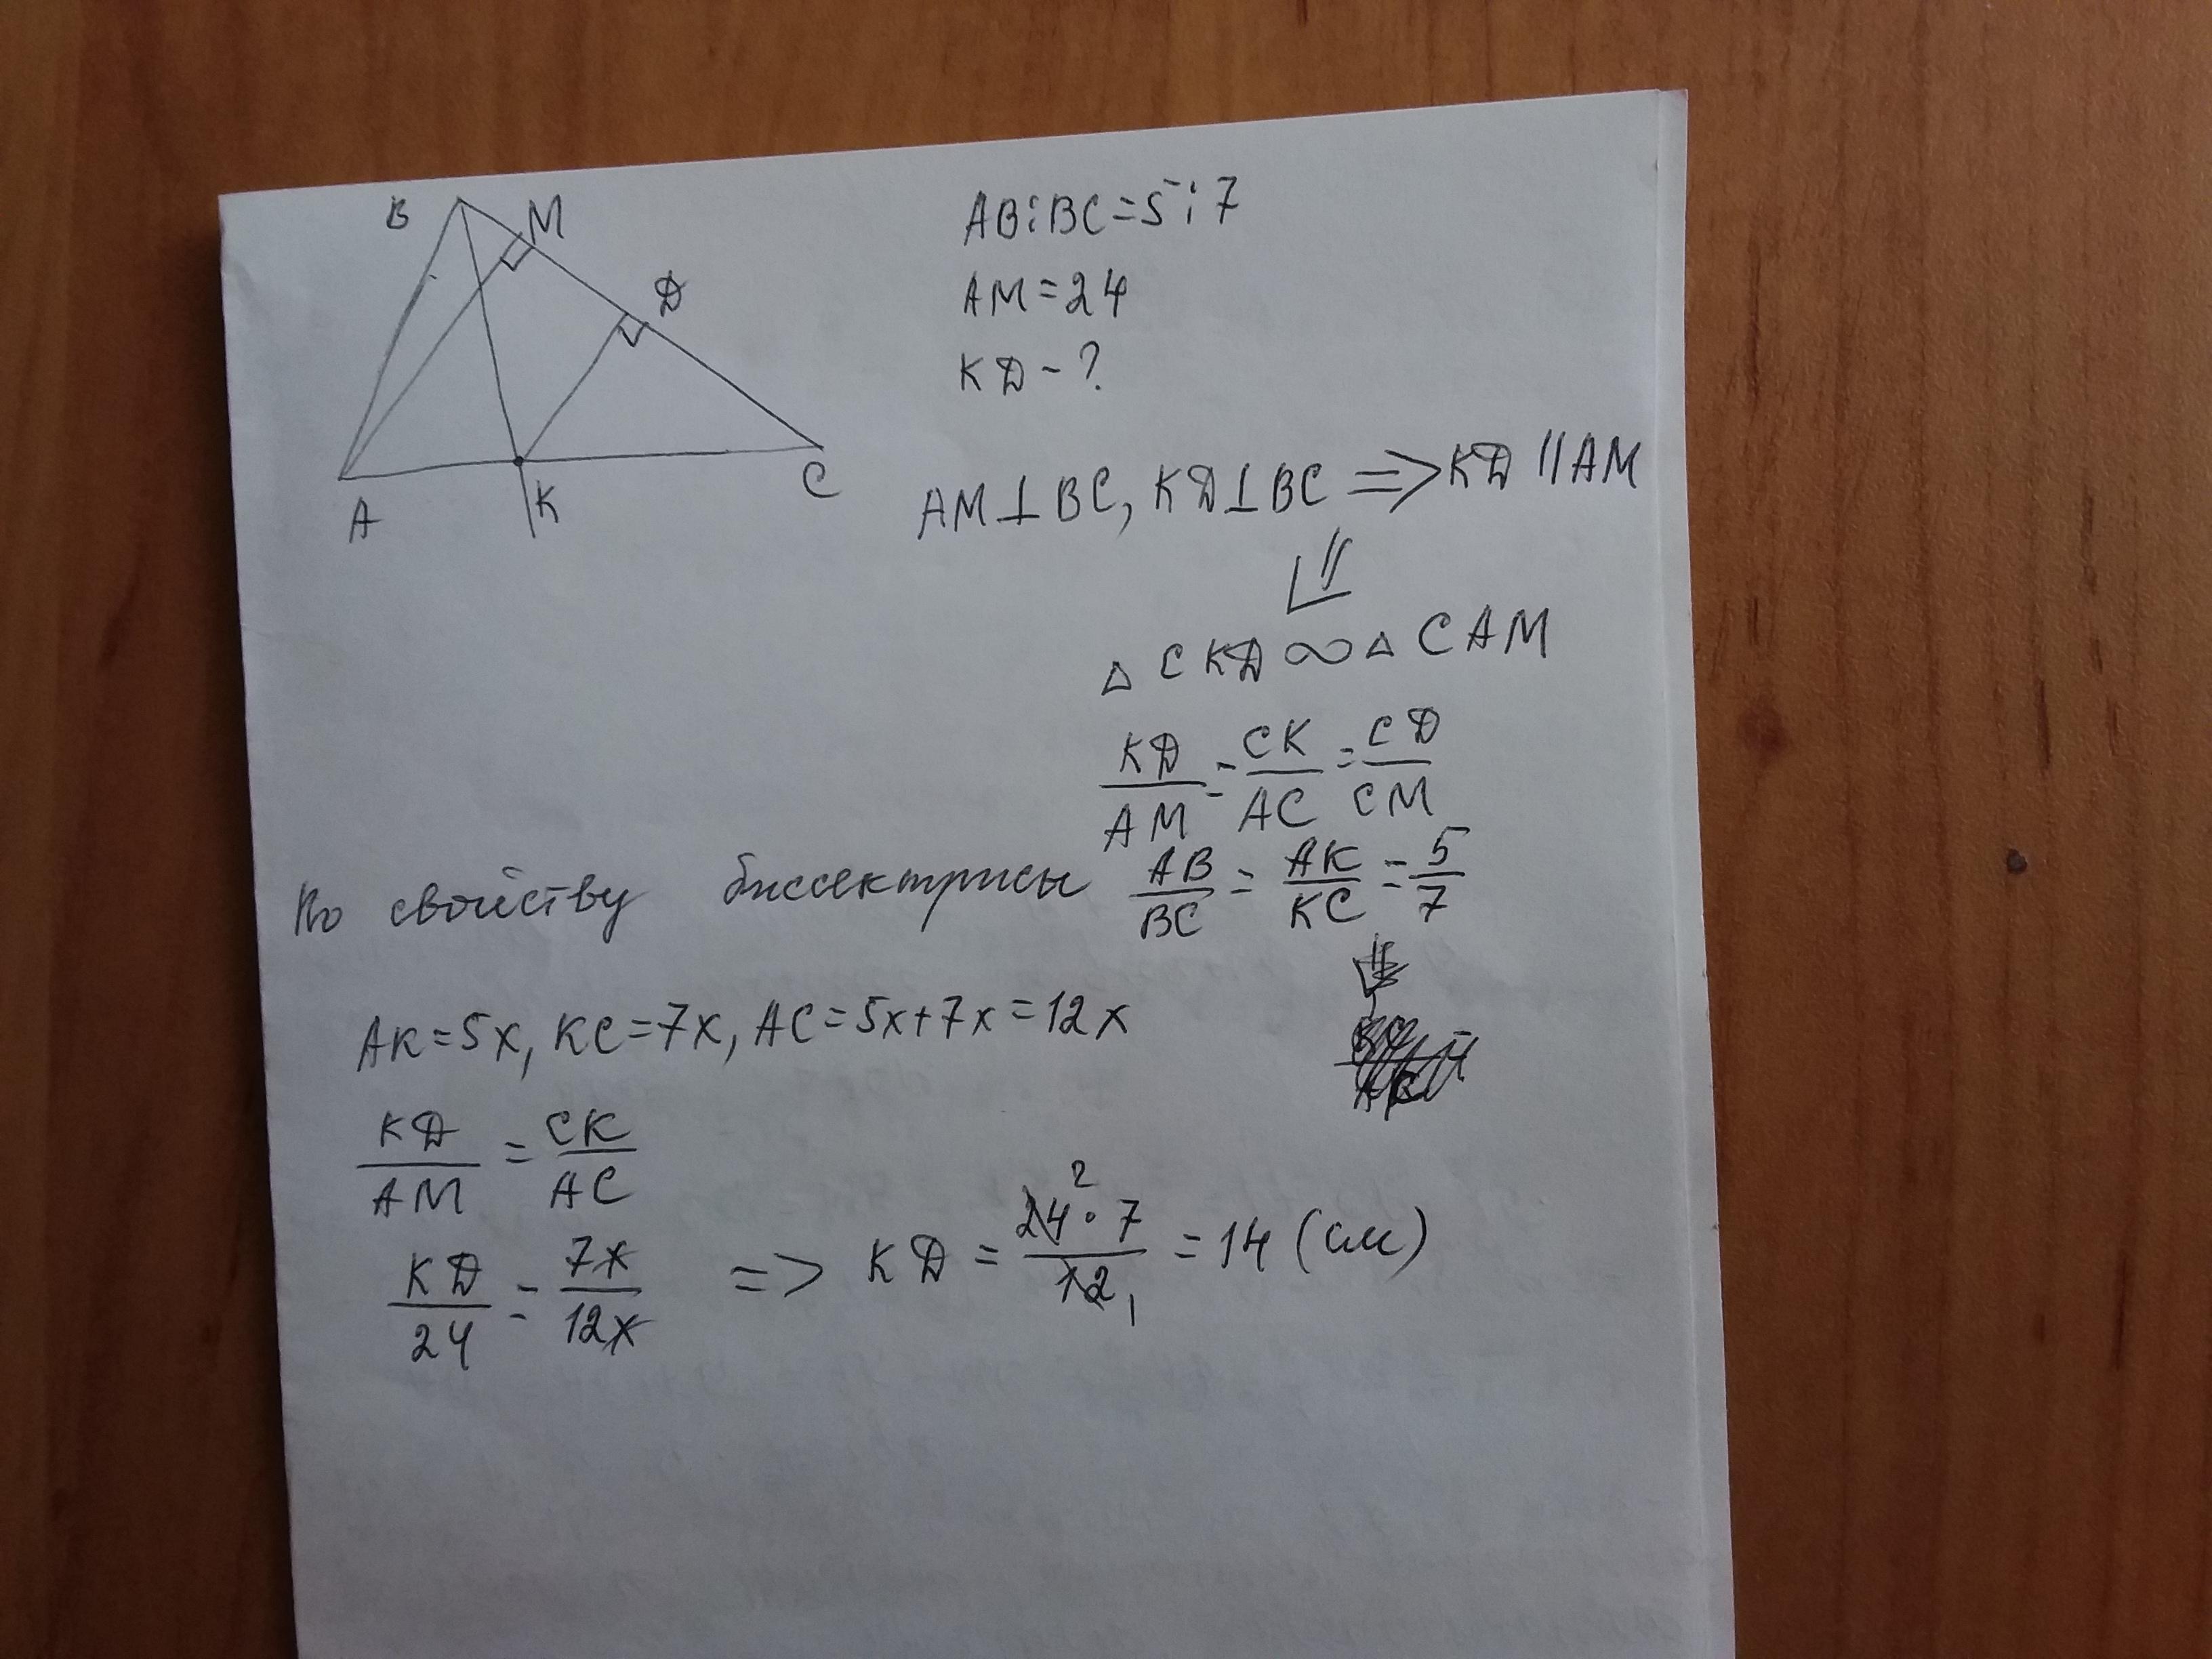 B
M
D
A
K
C
AB:BC=5:7
AM=24
KD-?
AM⊥BC, KD⊥BC => KD∥AM
⇓
△CKD∞△CAM
KD/AM = CK/AC = CD/CM
По свойству биссектрисы AB/BC = AK/KC = 5/7
AK=5x, KC=7x, AC=5x+7x=12x
KD/AM = CK/AC
KD/24 = 7x/12x => KD = 24² · 7/12₁ = 14 (см)